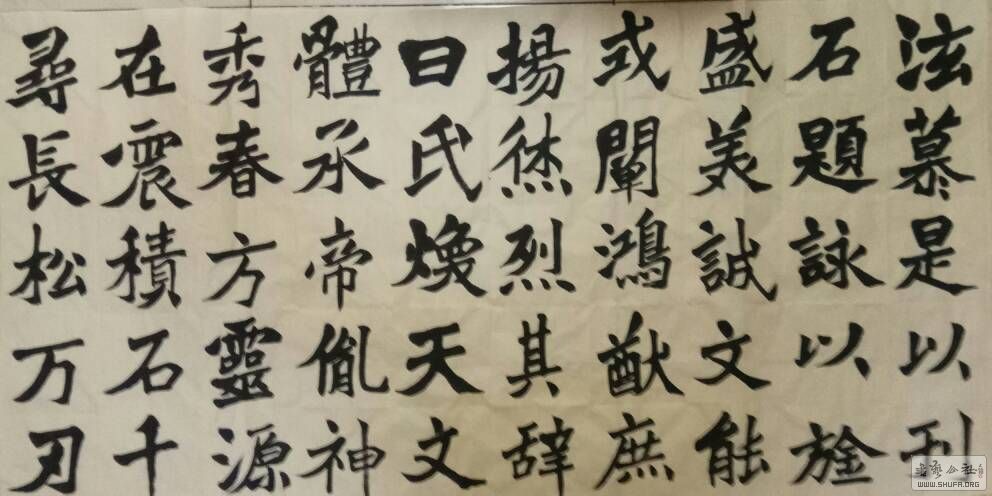 泫慕是以刊
石題詠以旌
盛美誠文能
式闡鴻猷庶
揚烋烈其辭
曰氏煥天文
體承帝胤神
秀春方靈源
在震積石千
尋長松万刃
WWW.SHUFA.ORG